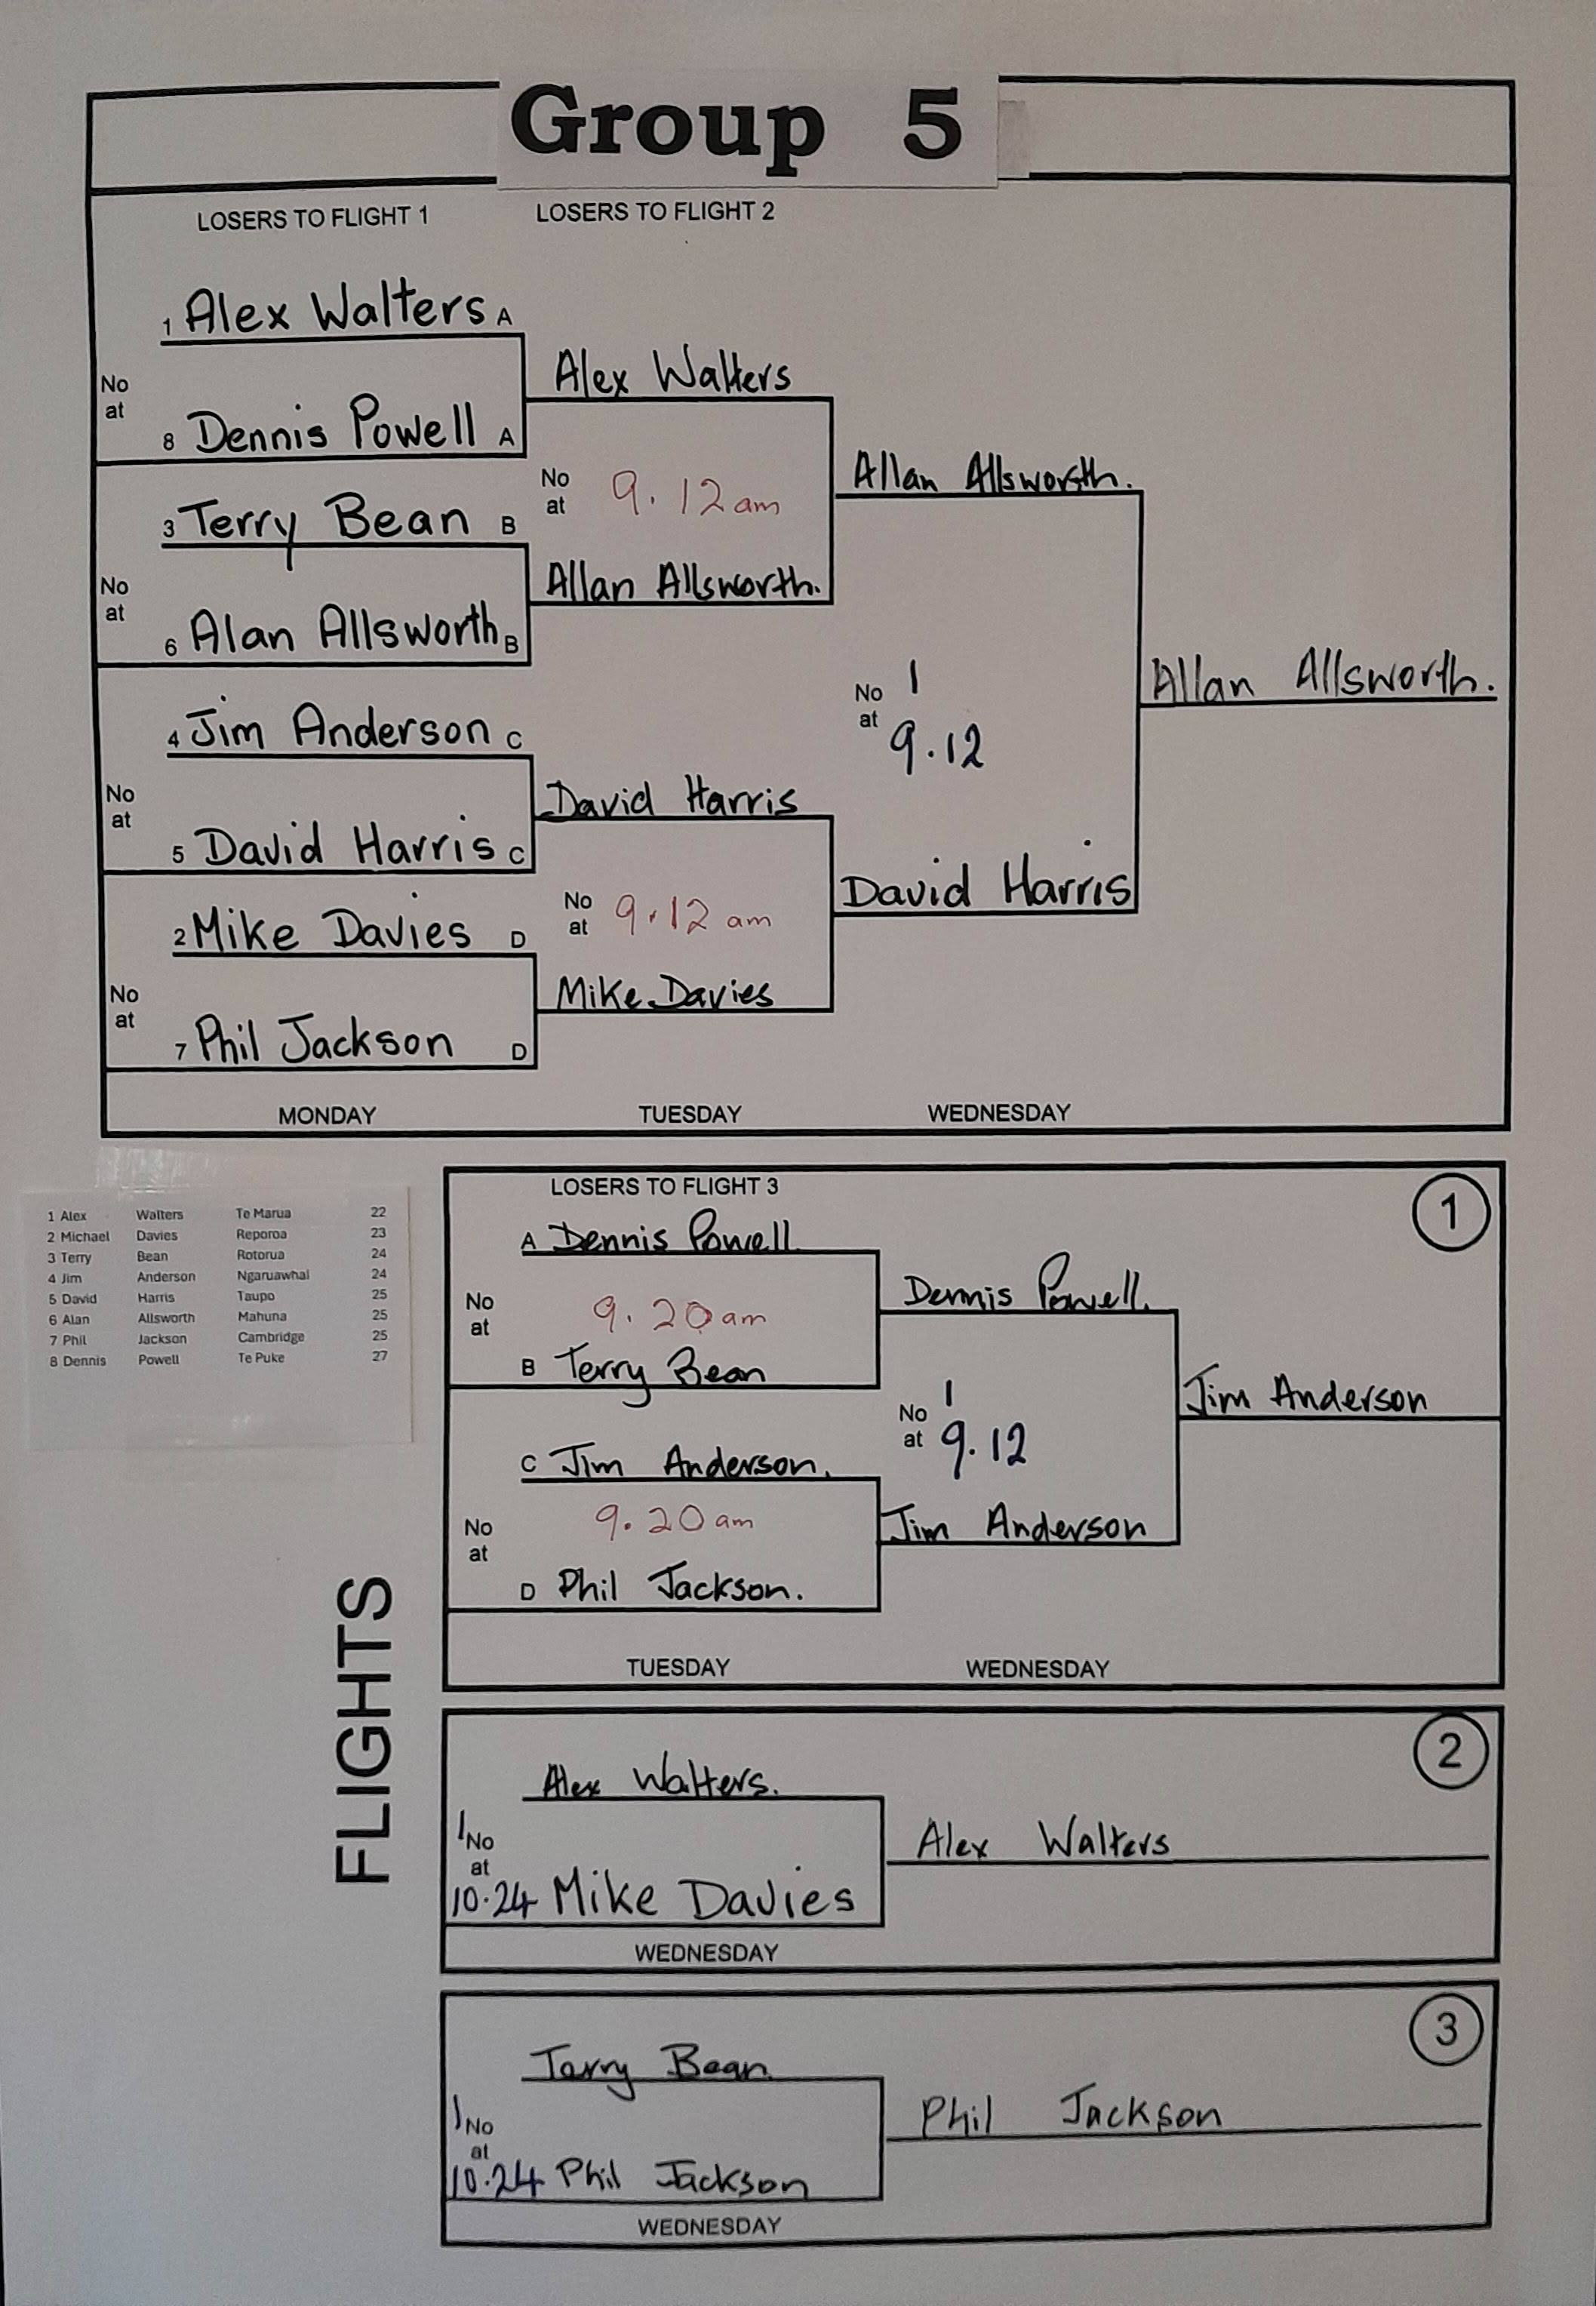 Group 5
LOSERS TO FLIGHT 1
LOSERS TO FLIGHT 2
1 Alex Walters A
No
at
8 Dennis Powell A
3 Terry Bean B
No
at
6 Alan Allsworth B
4 Jim Anderson C
No
at
5 David Harris C
2 Mike Davies D
No
at
7 Phil Jackson D
MONDAY
Alex Walters
No
at 9.12am
Allan Allsworth.
David Harris
No
at 9.12 am
Mike Davies
TUESDAY
Allan Allsworth.
No 1
at 9.12
David Harris
WEDNESDAY
Allan Allsworth.
1 Alex Walters Te Marua 22
2 Michael Davies Reporoa 23
3 Terry Bean Rotorua 24
4 Jim Anderson Ngaruawhai 24
5 David Harris Taupo 25
6 Alan Allsworth Mahuna 25
7 Phil Jackson Cambridge 25
8 Dennis Powell Te Puke 27
FLIGHTS
1
LOSERS TO FLIGHT 3
A Dennis Powell.
No
at 9.20am
B Terry Bean
C Jim Anderson.
No
at 9.20am
D Phil Jackson.
TUESDAY
Dennis Powell.
No 1
at 9.12
Jim Anderson
WEDNESDAY
Jim Anderson
2
Alex Walters.
1 No
at
10.24 Mike Davies
Alex Walters
WEDNESDAY
3
Terry Bean.
1 No
at
10.24 Phil Jackson
Phil Jackson
WEDNESDAY